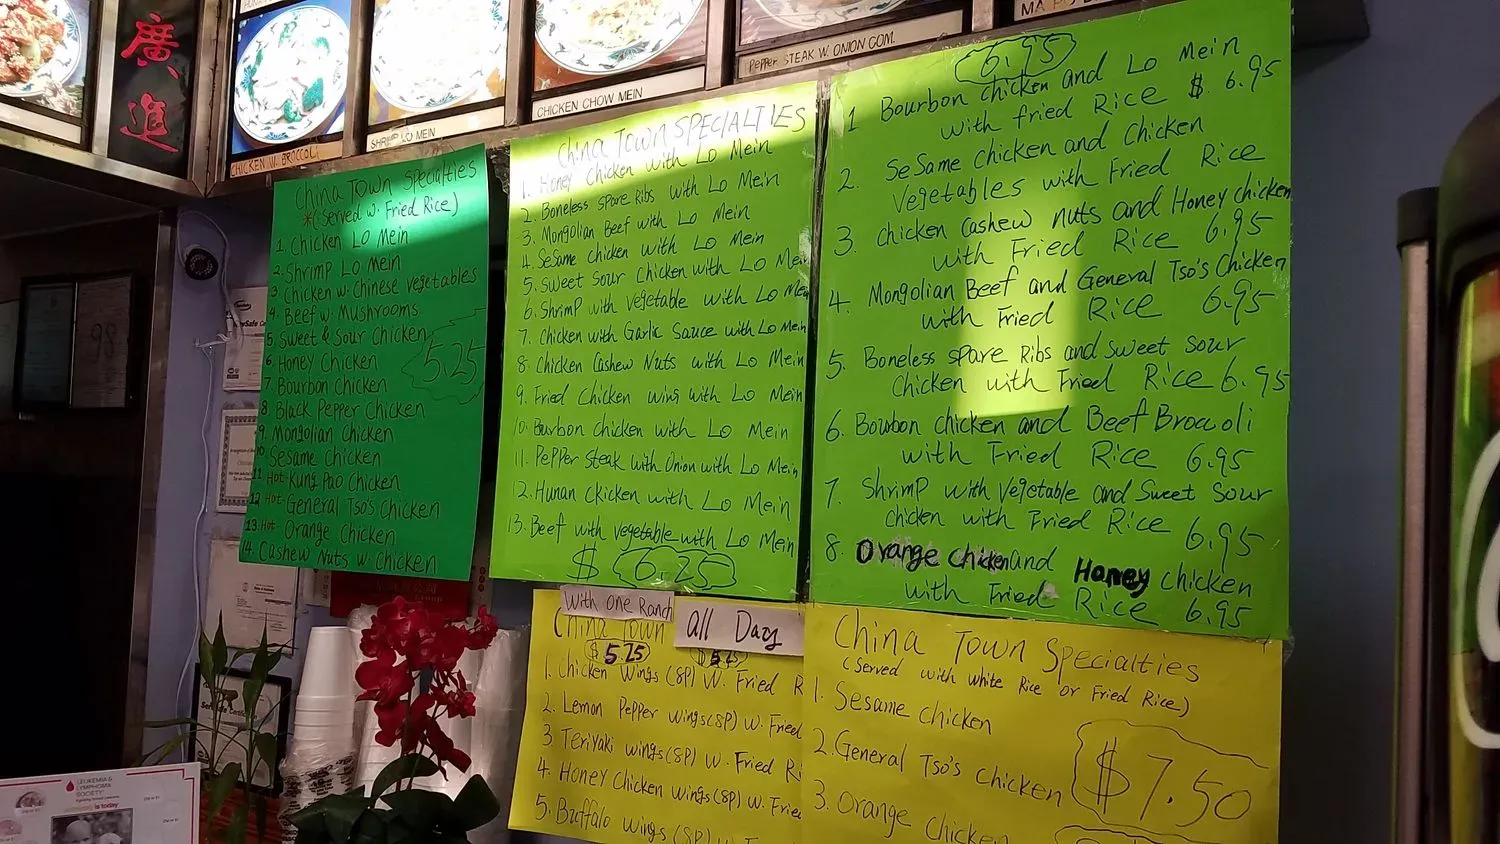 廣
進
CHICKEN W. BROCCOLI
SHRIMP LO MEIN
CHICKEN CHOW MEIN
PEPPER STEAK W. ONION COM.
China Town Specialties
*(Served w. Fried Rice)
1. Chicken Lo Mein
2. Shrimp Lo Mein
3. Chicken w. Chinese Vegetables
4. Beef w. Mushrooms
5. Sweet & Sour Chicken
6. Honey Chicken
7. Bourbon Chicken
8 Black Pepper Chicken
9. Mongolian Chicken
10 Sesame Chicken
11 Hot Kung Pao Chicken
12 Hot General Tso's Chicken
13. Hot Orange Chicken
14. Cashew Nuts w. Chicken
5.25
China Town SPECIALTIES
1. Honey Chicken with Lo Mein
2. Boneless Spare Ribs with Lo Mein
3. Mongolian Beef with Lo Mein
4. SeSame chicken with Lo Mein
5. Sweet Sour Chicken with Lo Mein
6. Shrimp with Vegetable with Lo Mein
7. Chicken with Garlic Sauce with Lo Mein
8. Chicken Cashew Nuts with Lo Mein
9. Fried Chicken wing with Lo Mein
10. Burbon chicken with Lo Mein
11. Pepper steak with Onion with Lo Mein
12. Hunan Ckicken with Lo Mein
13. Beef with vegetable with Lo Mein
$ 6.25
6.95
1 Bourbon chicken and Lo Mein
with fried Rice $ 6.95
2. SeSame chicken and Chicken
Vegetables with Fried Rice
3. chicken Cashew nuts and Honey chicken
with Fried Rice 6.95
4. Mongolian Beef and General Tso's Chicken
with Fried Rice 6.95
5. Boneless spare Ribs and Sweet Sour
Chicken with Fried Rice 6.95
6. Boubon chicken and Beef Broccoli
with Fried Rice 6.95
7. Shrimp with Vegetable and Sweet Sour
chicken with Fried Rice 6.95
8. Orange Chicken and Honey chicken
with Fried Rice 6.95
With One Ranch
All Day
China Town
$5.25 $5.25
1. Chicken Wings (8P) W. Fried R
2. Lemon Pepper wings(8P) w. Fried
3. Teriyaki wings(8P) w. Fried Ri
4. Honey Chicken wings(8P) w. Fried
5. Buffalo wings (8P) w. Fried
China Town Specialties
(Served with white Rice or Fried Rice)
1. Sesame chicken
2. General Tso's chicken
3. Orange chicken
$7.50
LEUKEMIA &
LYMPHOMA
SOCIETY
is today